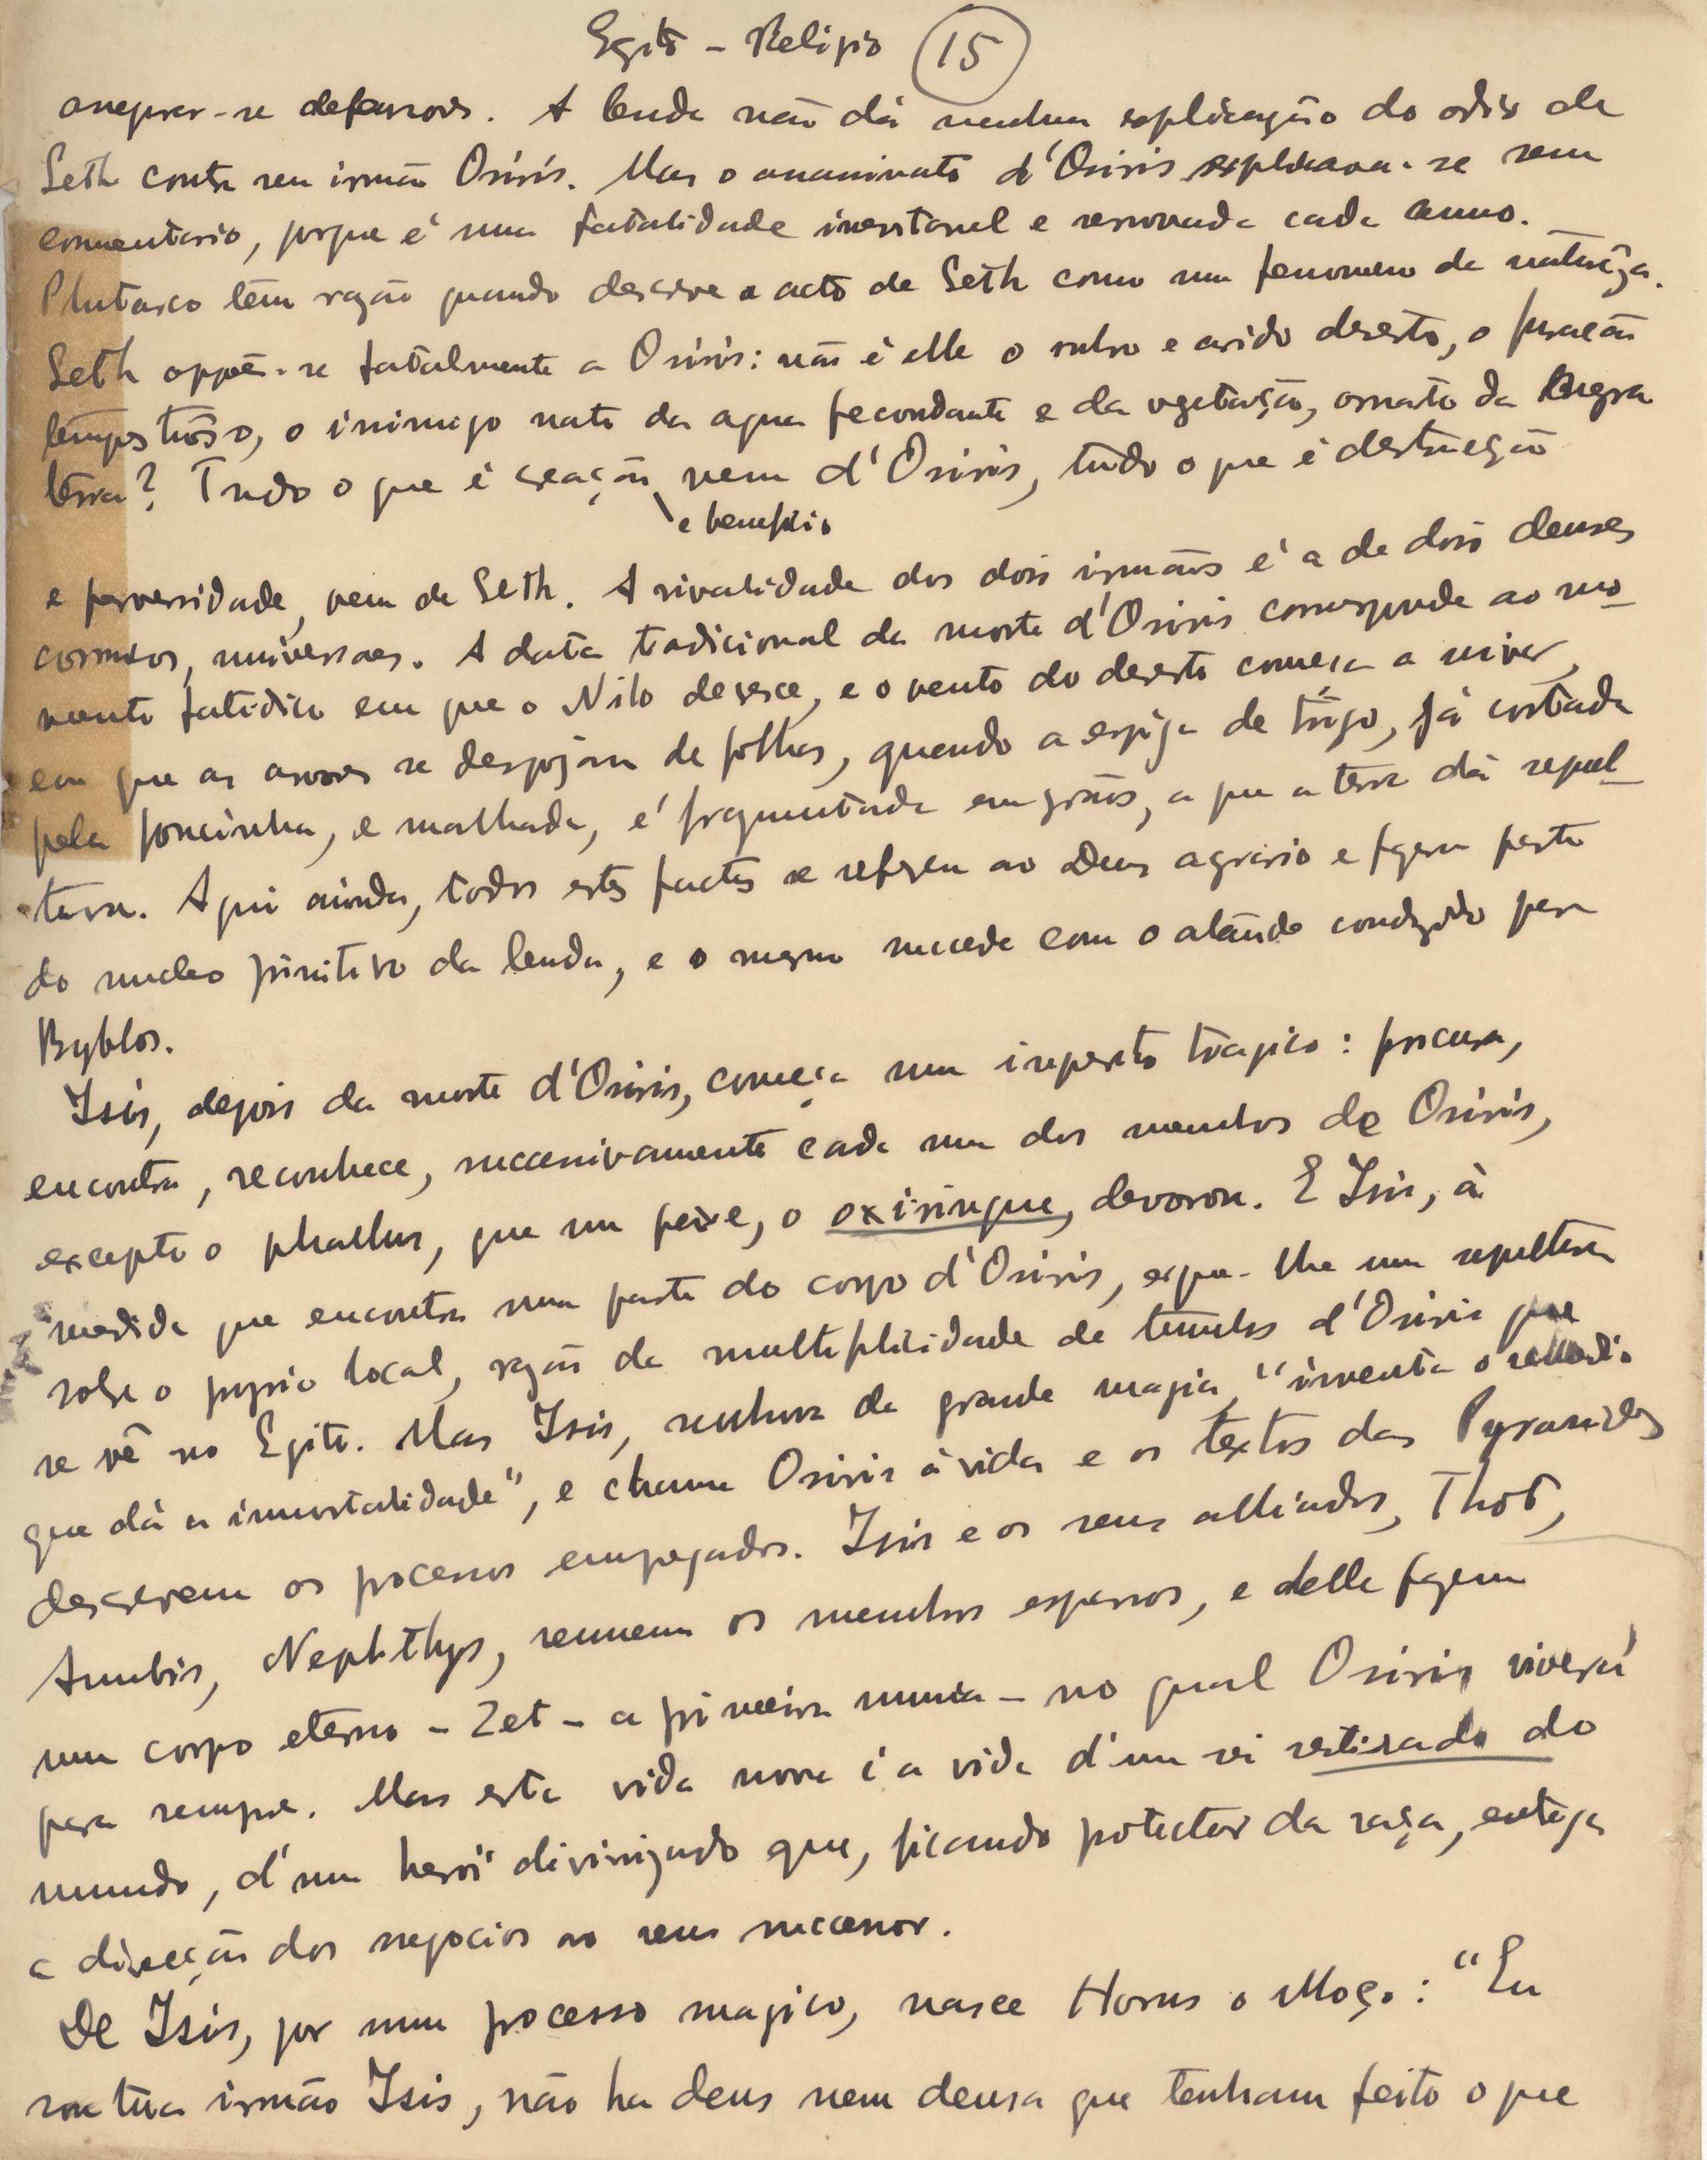 Egito - Religião (15)
A lenda não dá nenhuma explicação do odio de
Seth contra seu irmão Osiris. Mas o assassinato d'Osiris explicava-se sem
commentario, porque é uma fatalidade inevitavel e renovada cada anno.
Plutarco têm razão quando descreve o acto de Seth como um fenomeno da natureza.
Seth oppõe-se fatalmente a Osiris: não é elle o rubro e arido deserto, o furacão
tempestuoso, o inimigo nato da agua fecundante e da vegetação, ornato da Negra
terra? Tudo o que é creação vem d'Osiris, tudo o que é destruição
e beneficio
e perversidade, vem de Seth. A rivalidade dos dois irmãos é a de dois deuses
cosmicos, universaes. A data tradicional da morte d'Osiris corresponde ao mo-
mento fatidico em que o Nilo decresce, e o vento do deserto começa a uivar,
em que as arvores se despojam de folhas, quando a espiga de trigo, já cortada
pela foucinha, e malhada, é fragmentada em grãos, a que a terra dá sepul-
tura. Aqui ainda, todos estes factos se referem ao Deus agrario e fazem parte
do nucleo primitivo da lenda, e o mesmo succede com o ataúde conduzido para
Byblos.
Isis, depois da morte d'Osiris, começa um inquerito tragico: procura,
encontra, reconhece, successivamente cada um dos membros de Osiris,
excepto o phallus, que um peixe, o oxirinque, devorou. E Isis, à
medida que encontra uma parte do corpo d'Osiris, ergue-lhe uma sepultura
sobre o proprio local, razão da multiplicidade de tumulos d'Osiris que
se vê no Egito. Mas Isis, senhora da grande magia, "inventa o remedio
que dá a immortalidade", e chama Osiris à vida e os textos das Pyramides
descrevem os processos empregados. Isis e os seus alliados, Thot,
Anubis, Nephthys, reunem os membros esparsos, e delle fazem
um corpo eterno - Zet - a primeira mumia - no qual Osiris viverá
para sempre. Mas esta vida nova é a vida d'um rei retirado do
mundo, d'um heroi divinizado que, ficando protector da raça, entrega
a direcção dos negocios ao seus successor.
De Isis, por um processo magico, nasce Horus o Moço: "Eu
sou tua irmão Isis, não ha deus nem deusa que tenham feito o que